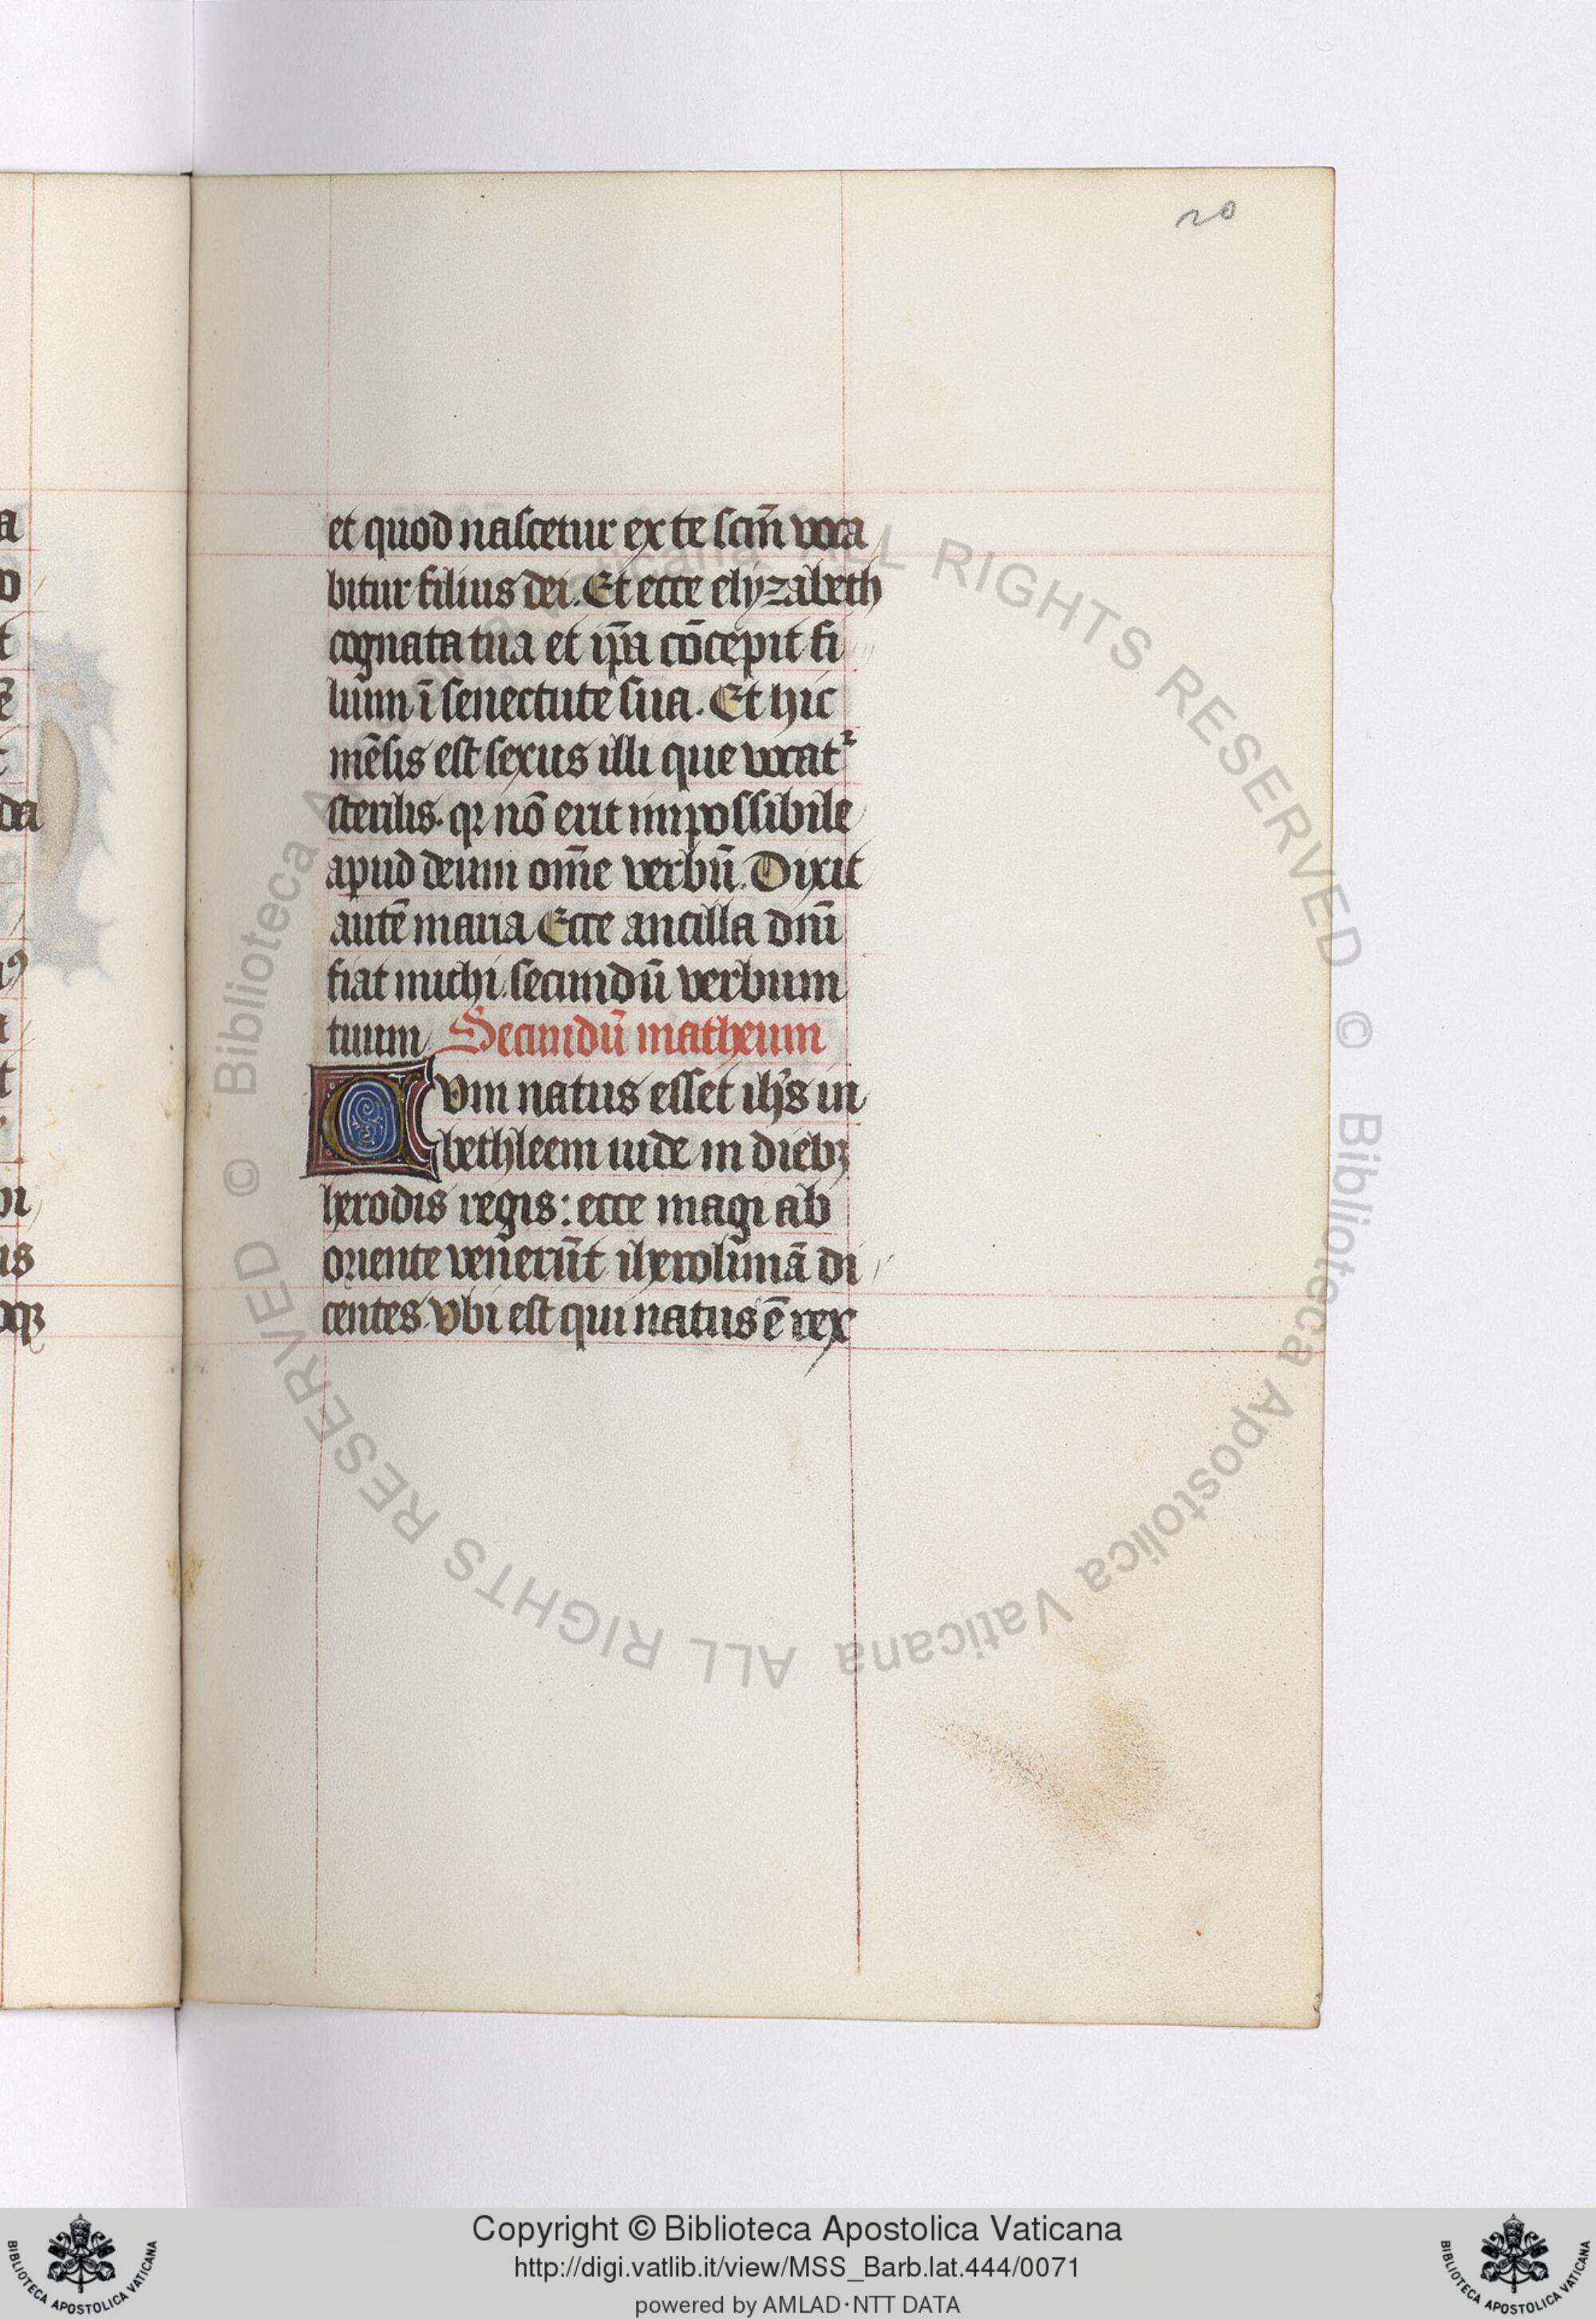 20
et quod nascetur ex te scm̄ voca
bitur filius dei. Et ecce elyzabeth
cognata tua et ip̄a cōcepit fi
liūm ī senectute sua. Et hic
mēsis est sexus illi que vocat᷑
sterilis. qꝛ nō erit impossibile
apud deum om̄e verbū. Dixit
autē maria Ecce ancilla dn̄i
fiat michi secundū verbum
tuum Secundū matheum
Cvm natus esset ih̄s in
bethleem iude in diebꝫ
herodis regis: ecce magi ab
oriente venerūt iherolimā di
centes vbi est qui natus ē rex
© Biblioteca Apostolica Vaticana ALL RIGHTS RESERVED
© Biblioteca Apostolica Vaticana ALL RIGHTS RESERVED
Copyright © Biblioteca Apostolica Vaticana
http://digi.vatlib.it/view/MSS_Barb.lat.444/0071
powered by AMLAD·NTT DATA
BIBLIOTECA APOSTOLICA VATICANA
BIBLIOTECA APOSTOLICA VATICANA